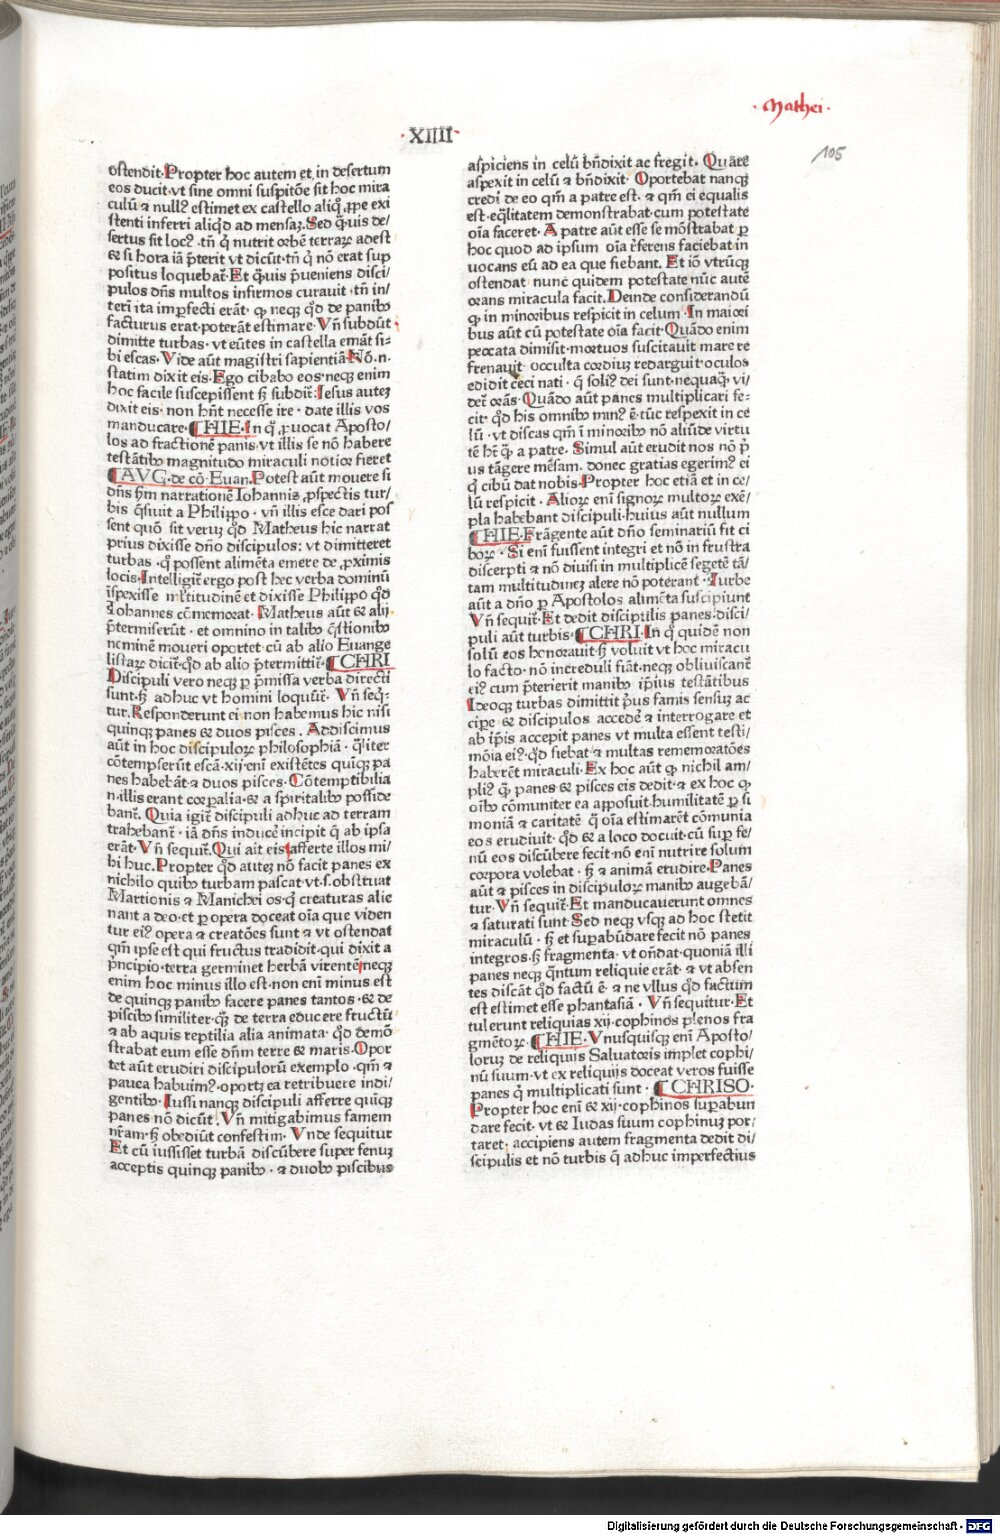 · Mathei ·
·XIIII·
105
ostendit. Propter hoc autem et in desertum
eos ducit·vt sine omni suspitōe sit hoc mira
culū ⁊ null⁹ estimet ex castello aliq̄ ꝓpe exi
stenti inferri aliqd ad mensaꝫ. Sed q̄uis de/
sertus sit loc⁹· tn̄ q̄ nutrit orbē terraꝝ adest
& si hora iā p̄terit vt dicūt·tn̄ q̄ nō erat sup
positus loquebat᷑. Et q̄uis p̄ueniens disci/
pulos dn̄s multos infirmos curauit · tn̄ in/
terī ita imꝑfecti erāt· ꝙ neqꝫ qd de panibꝫ
facturus erat·poterāt estimare· Vn̄ subdūt·
dimitte turbas · vt eūtes in castella emāt si-
bi escas. Vide aūt magistri sapientiā· Nō.n.
statim dixit eis· Ego cibabo eos·neqꝫ enim
hoc facile suscepissent sꝫ subdit᷑: Iesus auteꝫ
dixit eis· non hn̄t necesse ire · date illis vos
manducare. HIE· In q̄ ꝓuocat Aposto/
los ad fractionē panis·vt illis se nō habere
testātibꝫ magnitudo miraculi notior fieret
AVG·de cō·Euan. Potest aūt mouere si
dn̄s ẜm narrationē Iohannis ꝓspectis tur/
bis q̄siuit a Philippo · vn̄ illis esce dari pos
sent quō sit veruꝫ qd Matheus hic narrat
prius dixisse dn̄o discipulos: vt dimitteret
turbas · q̄ possent alimēta emere de ꝓximis
locis. Intelligit᷑ ergo post hec verba dominū
īspexisse ml̄titudinē et dixisse Philippo qd
Iohannes cōmemorat· Matheus aūt & alij
p̄termiserūt · et omnino in talibꝫ q̄stionibꝫ
neminē moueri oportet·cū ab alio Euange
listaꝝ dicit᷑·qd ab alio p̄termittit᷑· CHRI
Discipuli vero neqꝫ ꝑ p̄missa verba directi
sunt·sꝫ adhuc vt homini loquūt᷑· Vn̄ seq̄-
tur. Responderunt ei·non habemus hic nisi
quinqꝫ panes & duos pisces . Addiscimus
aūt in hoc discipuloꝝ philosophiā · q̄liter
cōtempserūt escā·xij·enī existētes quīqꝫ pa
nes habebāt·⁊ duos pisces. Cōtemptibilia
.n.illis erant corꝑalia·& a spiritalibꝫ posside
bant᷑. Quia igit᷑ discipuli adhuc ad terram
trahebant᷑ · iā dn̄s inducē incipit q̄ ab ipsa
erāt· Vn̄ sequit᷑. Qui ait eis: afferte illos mi/
hi huc. Propter qd auteꝫ nō facit panes ex
nichilo quibꝫ turbam pascat·vt.s.obstruat
Martionis ⁊ Manichei os·q̄ creaturas alie
nant a deo·et ꝑ opera doceat oīa que viden
tur ei⁹ opera ⁊ creatōes sunt ⁊ vt ostendat
qm̄ ipse est qui fructus tradidit·qui dixit a
p̄ncipio·terra germinet herbā virentē: neqꝫ
enim hoc minus illo est·non enī minus est
de quinqꝫ panibꝫ facere panes tantos · & de
piscibꝫ similiter·q̄ꝫ de terra educere fructū
⁊ ab aquis reptilia alia animata· qd demō
strabat eum esse dn̄m terre & maris. Opor
tet aūt erudiri discipulorū exemplo · qm̄ ⁊
pauca habuim⁹·oportꝫ ea retribuere indi/
gentibꝫ· Iussi nanqꝫ discipuli afferre quīqꝫ
panes nō dicūt. Vn̄ mitigabimus famem
nr̄am·sꝫ obediūt confestim· Vnde sequitur
Et cū iussisset turbā discūbere super fenuꝫ
acceptis quinqꝫ panibꝫ · ⁊ duobꝫ piscibus
aspiciens in celū bn̄dixit ac fregit. Quare
aspexit in celū ⁊ bn̄dixit· Oportebat nanqꝫ
credi de eo qm̄ a patre est· ⁊ qm̄ ei equalis
est·eq̄litatem demonstrabat·cum potestate
oīa faceret· A patre aūt esse se mōstrabat ꝑ
hoc quod ad ipsum oīa r̄ferens faciebat·in
uocans eū ad ea que fiebant. Et iō vtrūqꝫ
ostendat nunc quidem potestate nūc autē
orans miracula facit. Deinde considerandū
ꝙ in minoribus respicit in celum · In maiori
bus aūt cū potestate oīa facit· Quādo enim
peccata dimisit·mortuos suscitauit mare re
frenauit· occulta cordiuꝫ redarguit·oculos
edidit ceci nati · q̄ soli⁹ dei sunt·nequaq̄ vi/
det᷑ orās· Quādo aūt panes multiplicari fe-
cit· qd his omnibꝫ min⁹ ē·tūc respexit in ce
lū · vt discas qm̄ ī minoribꝫ nō aliūde virtu
tē ht̄ q̄ a patre· Simul aūt erudit nos nō p̄
us tāgere mēsam· donec gratias egerim⁹ ei
q̄ cibū dat nobis· Propter hoc etiā et in ce/
lū respicit. Alioꝝ enī signoꝝ multoꝝ exē/
pla habebant discipuli·huius aūt nullum
HIE· Frāgente aūt dn̄o seminariū fit ci
boꝝ · Si enī fuissent integri et nō in frustra
discerpti ⁊ nō diuisi in multiplicē segetē tā/
tam multitudineꝫ alere nō poterant· Turbe
aūt a dn̄o ꝑ Apostolos alimēta suscipiunt
Vn̄ sequit᷑· Et dedit discipulis panes·disci/
puli aūt turbis· CHRI· In q̄ quidē non
solū eos honorauit·sꝫ voluit vt hoc miracu
lo facto·nō increduli fiāt·neqꝫ obliuiscant᷑
ei⁹ cum p̄terierit manibꝫ ip̄ius testātibus
Ideoqꝫ turbas dimittit p̄us famis sensuꝫ ac
cipe & discipulos accedē ⁊ interrogare et
ab ip̄is accepit panes vt multa essent testi/
mōia ei⁹·qd fiebat·⁊ multas rememoratōes
haberēt miraculi· Ex hoc aūt ꝙ nichil am/
pli⁹ q̄ panes & pisces eis dedit·⁊ ex hoc ꝙ
oībꝫ cōmuniter ea apposuit·humilitatē ꝑ si
moniā ⁊ caritatē q̄ oīa estimarēt cōmunia
eos erudiuit· qd & a loco docuit·cū suꝑ fe/
nū eos discūbere fecit·nō enī nutrire solum
corpora volebat · sꝫ ⁊ animā erudire· Panes
aūt ⁊ pisces in discipuloꝝ manibꝫ augebā/
tur· Vn̄ sequit᷑· Et manducauerunt omnes
⁊ saturati sunt· Sed neqꝫ vsqꝫ ad hoc stetit
miraculū · sꝫ et suꝑabūdare fecit nō panes
integros·sꝫ fragmenta· vt on̄dat·quoniā illi
panes neqꝫ q̄ntum reliquie erāt· ⁊ vt absen
tes discāt qd factū ē· ⁊ ne vllus qd factum
est estimet esse phantasiā · Vn̄ sequitur· Et
tulerunt reliquias xij·cophinos plenos fra
gmētoꝝ· HIE· Vnusquisqꝫ enī Aposto/
loruꝫ de reliquijs Saluatoris implet cophi/
nū suum·vt ex reliquijs doceat veros fuisse
panes q̄ multiplicati sunt · CHRISO·
Propter hoc enī & xij·cophinos suꝑabun
dare fecit· vt & Iudas suum cophinuꝫ por/
taret· accipiens autem fragmenta dedit di/
scipulis et nō turbis q̄ adhuc imperfectius
Digitalisierung gefördert durch die Deutsche Forschungsgemeinschaft · DFG